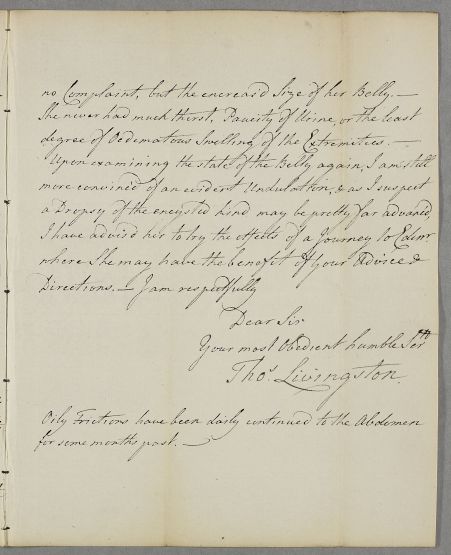 no Complaint, but the encreas'd Size of her Belly. —
She never had much thirst, Paucity of Urine, or the least
degree of Oedematous Swelling of the Extremities. —
Upon examining the state of the Belly again, I am still
more convinced of an evident Undulation, & as I suspect
a Dropsy of the encysted kind may be pretty far advanced,
I have advis'd her to try the effects of a Journey to Edinr.
where She may have the benefit of your Advice &
Directions. — I am respectfully
Dear Sir
Your most Obedient humble Servt
Thos. Livingston.
Oily Frictions have been daily continued to the Abdomen
for some months past. —